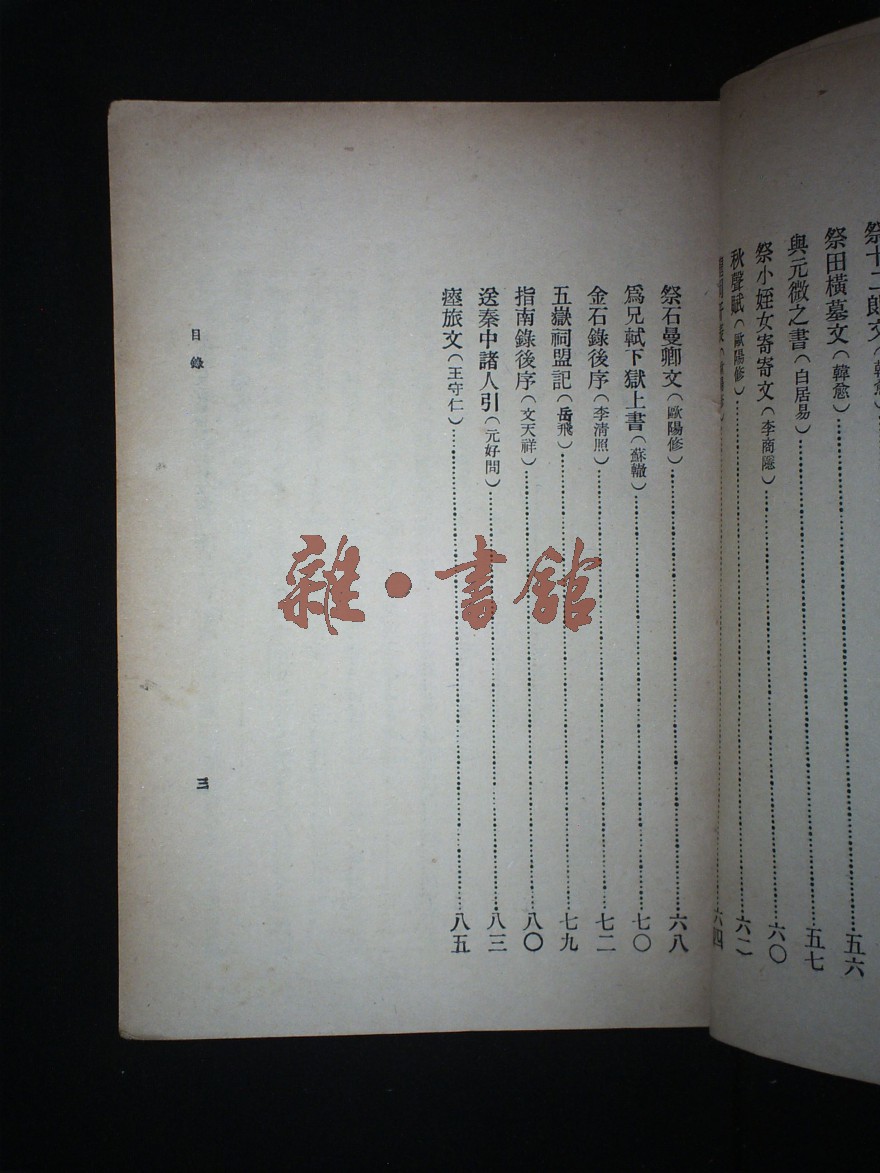 祭十二郎文（韓愈
祭田橫墓文（韓愈）……五六
與元微之書（白居易）……五七
祭小姪女寄寄文（李商隱）……六〇
秋聲賦（歐陽修）……六二
六四
祭石曼卿文（歐陽修）……六八
爲兄軾下獄上書（蘇轍）……七〇
金石錄後序（李清照）……七二
五嶽祠盟記（岳飛）……七九
指南錄後序（文天祥）……八〇
送秦中諸人引（元好問）……八三
瘞旅文（王守仁）……八五
目錄
三
雜·書館